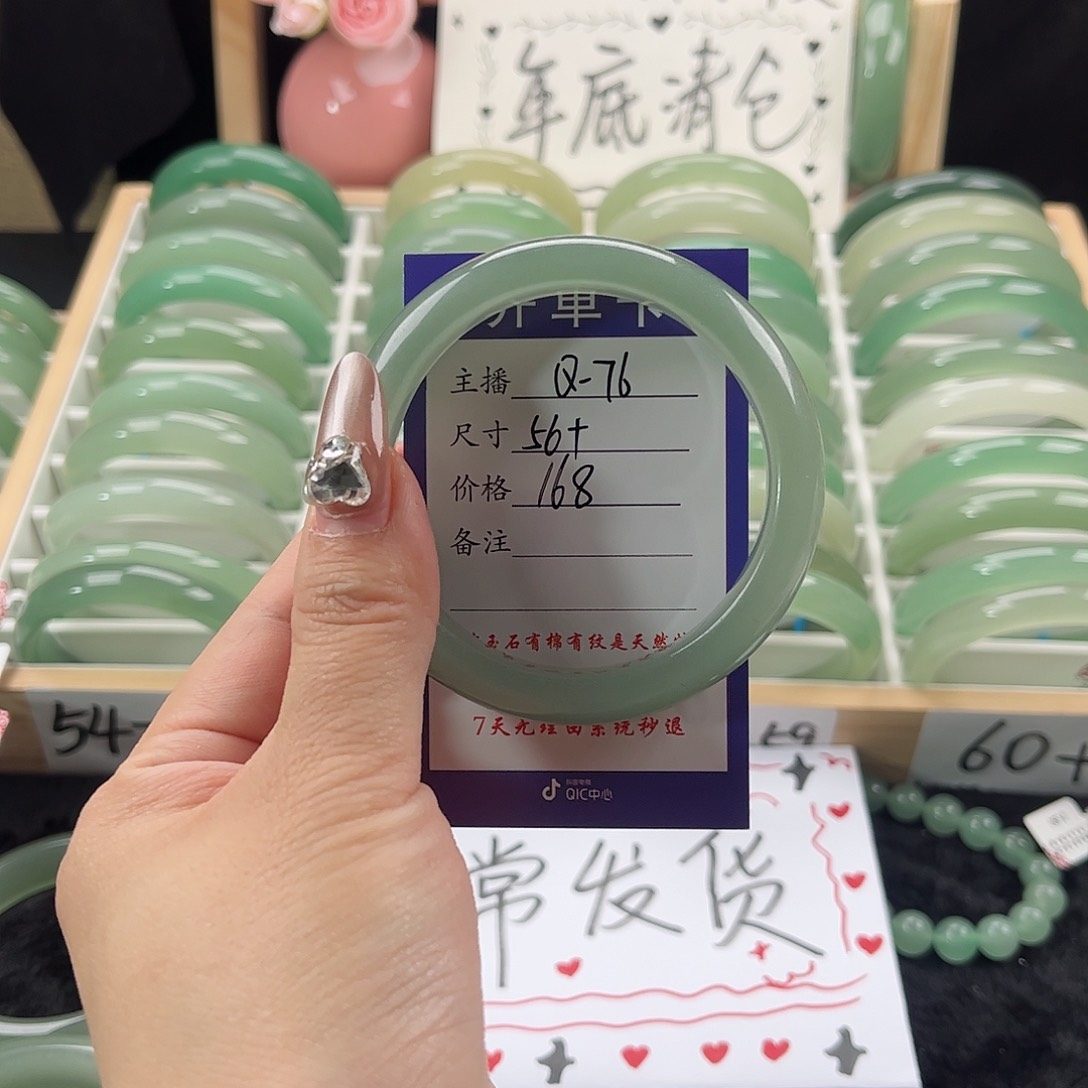 年底清仓
开单卡
主播 Q-76
尺寸 56+
价格 168
备注
玉石有棉有纹是天然
7天无理由系统秒退
QIC中心
54
59
60+
常发货